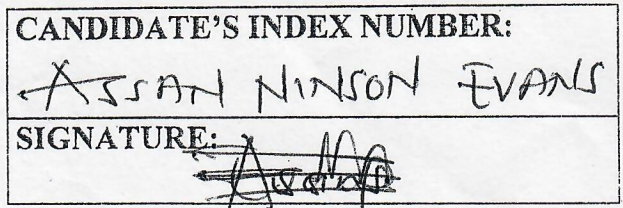 CANDIDATE'S INDEX NUMBER:
ASSAN NINSON EVANS
SIGNATURE: